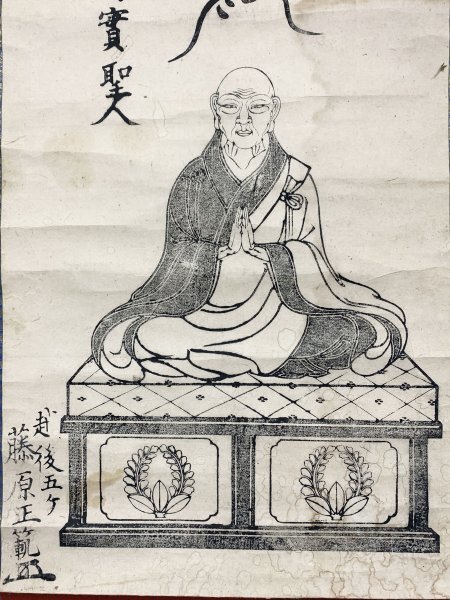 實聖人
越後五ケ
藤原正範